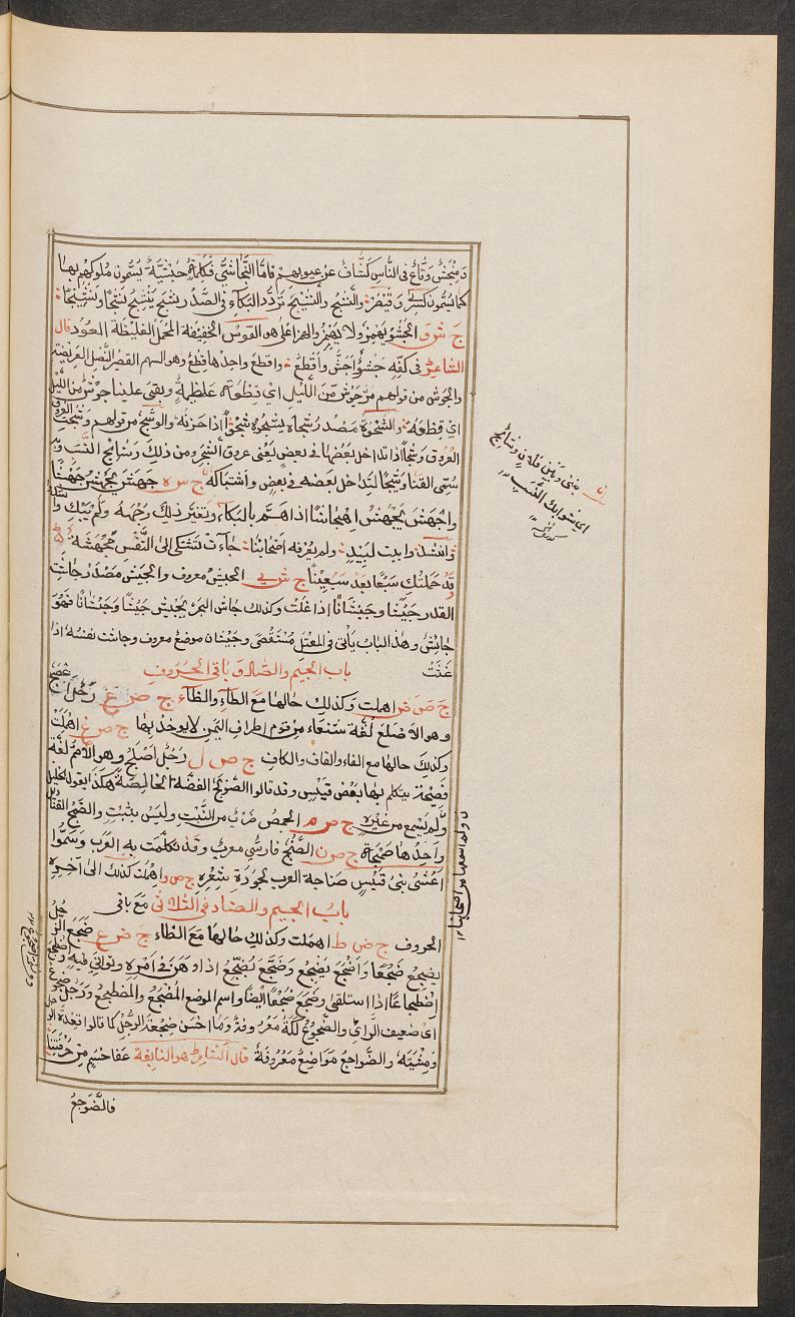 ومِنجَش وقَّاع في النّاس كشّاف عن عيوبهم فامّا النَّجاشيّ فكلمة حبشيّة يسمّون ملوكهم بها
كما يسمّون كسرى وقيصر والنشيج والنشيج تردّد البكاء في الصّدر نشج ينشج نشجًا ونشيجًا
ج ش و الجشو يهمز ولا يهمز والهمز اعلى هو القوس الخفيفة المحمل الغليظة العود قال
الشاعر في كفّه جشوٌ اجشّ واقطع واقطع واحدها قطع وهو السهم القصير النّصل العريضه
والجوش من قولهم مرّ جوش من اللّيل اي قطعة عظيمة وبقى علينا جوش من اللّيل
اي قطعة والشجو مصدر شجاه يشجوه شجوًا اذا حزنه والوشج من قولهم وشجت العروق
العروق وشجًا اذا تداخل بعضها في بعض يعنى عروق الشجر ومن ذلك وشائج النّسب وبه
سمّى القنا وشيجًا لتداخل بعضه في بعض واشتباكه ج ش ه جهش يجهش جهشًا
واجهش يجهش اجهاشًا اذا همّ بالبكاء وتغيّر لذلك وجهه ولم يبك
وانشد وابيت لبيد ولم يعرفه اصحابنا جاءت تشكّى الى النّفس مجهشة
قد حملتك سبعًا بعد سبعينا ج ش ي الجيش معروف والجيش مصدر جاشت
القدر جيشًا وجيشانًا اذا غلت وكذلك جاش البحر يجيش جيشًا وجيشانًا فهو
جائش وهذا الباب يأتى في المعتلّ مستقصى وجيشان موضع معروف وجاشت نفسه اذا
غثت باب الجيم والصاد وباقي الحروف
ج ص ض اهملت وكذلك حالها مع الطاء والظاء ج ص ع رجل
وهو الاصلع لغة شنعاء من قوم اطراف اليمن لا يوخذ بها ج ص غ اهملت
وكذلك حالها مع الفاء والقاف والكاف ج ص ل رجل اصلج وهو الاصمّ لغة
فصيحة يتكلم بها بعض قيس وقد قالوا الصّولج الفضّة الخالصة هكذا يقول الخليل
ولم يسمع من غيره ج ص م الجمص ضرب من النّبت وليس بثبت والصّمج القناديل
واحدها صمجة ج ص ن الصّنج فارسي معرب وقد تكلّمت به العرب وسمّوا
اعشى بنى قيس صناجة العرب لجودة شعره ج ص و اهملت كذلك الى آخره
باب الجيم والضاد في الثلاثى مع باقى
الحروف ج ض ط اهملت وكذلك حالها مع الظاء ج ض ع ضجع الرجل
يضجع ضجعًا واضجع يضجع وضجّع يضجّع اذا وهن في امره وتوانى فيه
اضطجاعًا اذا استلقى وضجع ضجعًا ايضًا واسم الموضع المضجع والمضطجع ورجل
اى ضعيف الراي والضجوع اكمة معروفة وما احسن ضجعة الرجل كما قالوا قعدة
ومشية والضواجع مواضع معروفة قال الشاعر هو النابغة عفا حسم من فرتنا
فالضواجع